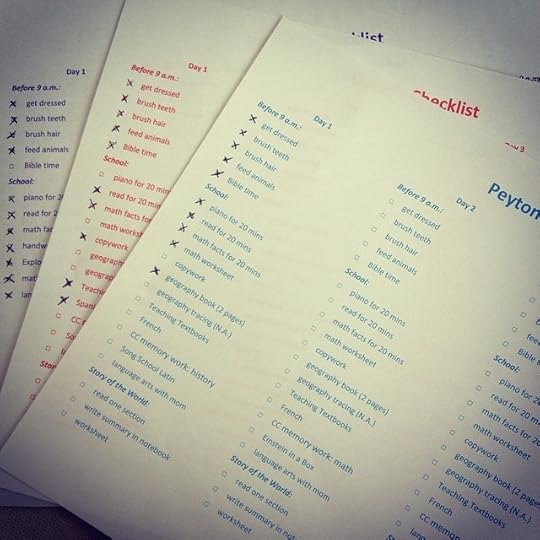 Day 1
Before 9 a.m.:
get dressed
brush teeth
brush hair
feed animals
Bible time
School:
piano for 20
read for 2
math
math
Day 1
Before 9 a.m.:
get dressed
brush teeth
brush hair
feed animals
Bible time
School:
piano for 20 mins
read for 20 mins
math facts for 20
math worksheet
copywork
Checklist
Peyton
Before 9 a.m.:
Day 1
get dressed
brush teeth
brush hair
feed animals
Bible time
School:
piano for 20 mins
read for 20 mins
math facts for 20 mins
math worksheet
copywork
geography book (2 pages)
geography tracing (N.A.)
Teaching Textbooks
French
CC memory work: history
Song School Latin
language arts with mom
Story of the World:
read one section
write summary in notebook
worksheet
Before 9 a.m.:
Day 2
get dressed
brush teeth
brush hair
feed animals
Bible time
School:
piano for 20 mins
read for 20 mins
math facts for 20 mins
math worksheet
copywork
geography book (2 pages)
geography tracing (N.A.)
Teaching Textbooks
French
CC memory work: math
Einstein in a Box
language arts with mom
Story of the World:
read one section
write summary in
worksheet
School:
piano for
read for 20
math facts for
math worksheet
copywork
geography book (2
geography tracing
Teaching Textbooks
French
CC memory